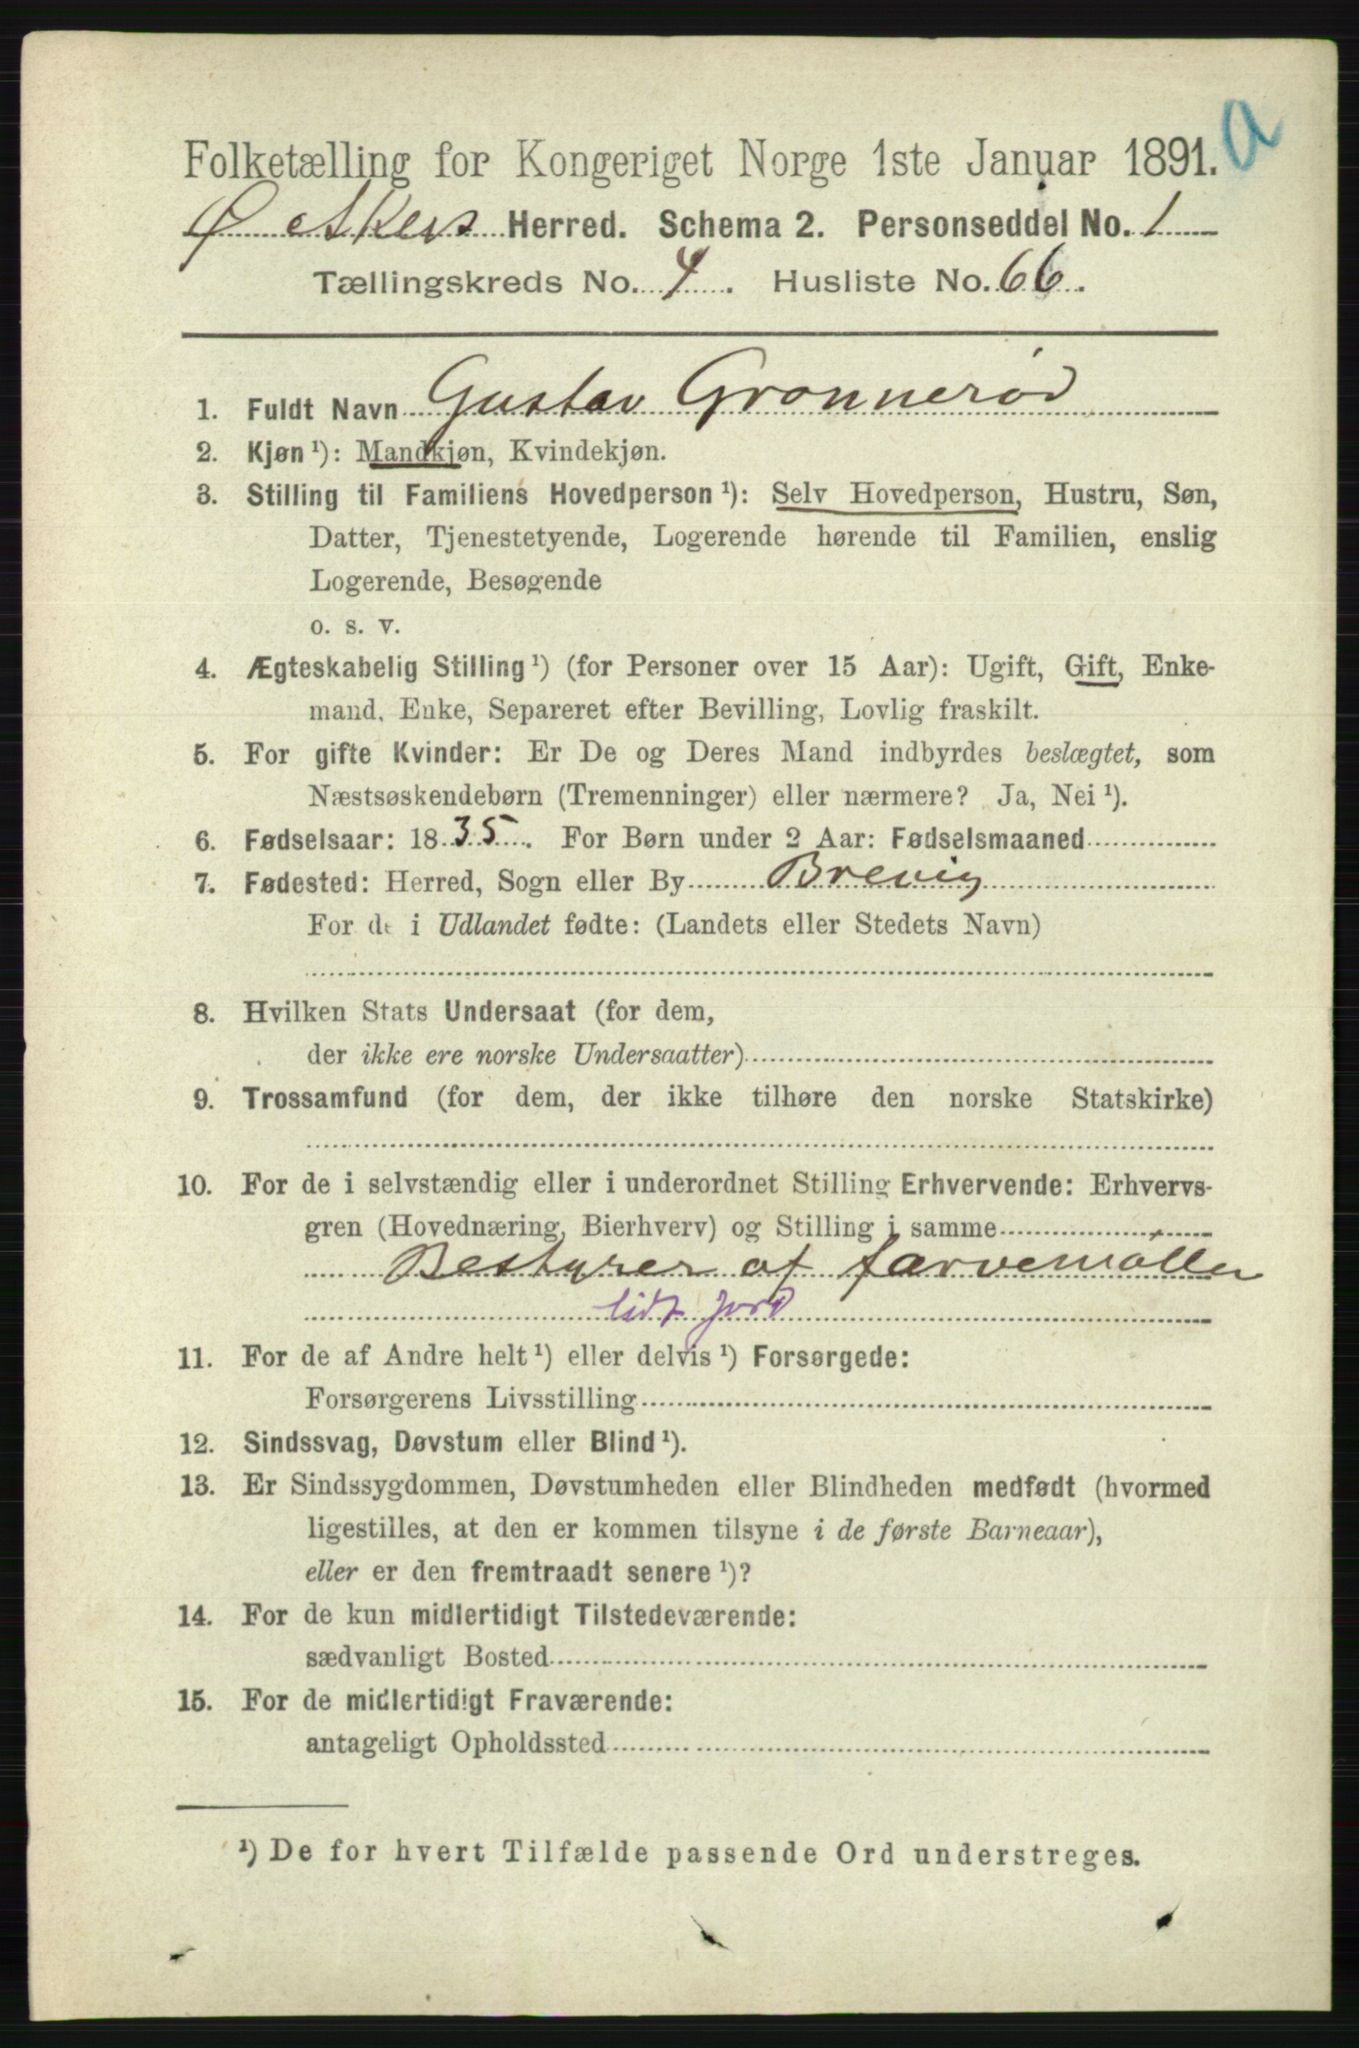 a
Folketælling for Kongeriget Norge 1ste Januar 1891.
Ø. Eskers Herred. Schema 2. Personseddel No. 1
Tællingskreds No. 4. Husliste No. 66.
1. Fuldt Navn Gustav Grønnerød
2. Kjøn ¹): Mandkjøn, Kvindekjøn.
3. Stilling til Familiens Hovedperson ¹): Selv Hovedperson, Hustru, Søn,
Datter, Tjenestetyende, Logerende hørende til Familien, enslig
Logerende, Besøgende
o. s. v.
4. Ægteskabelig Stilling ¹) (for Personer over 15 Aar): Ugift, Gift, Enke-
mand, Enke, Separeret efter Bevilling, Lovlig fraskilt.
5. For gifte Kvinder: Er De og Deres Mand indbyrdes beslægtet, som
Næstsøskendebørn (Tremenninger) eller nærmere? Ja, Nei ¹).
6. Fødselsaar: 1835. For Børn under 2 Aar: Fødselsmaaned
7. Fødested: Herred, Sogn eller By Brevig
For de i Udlandet fødte: (Landets eller Stedets Navn)
8. Hvilken Stats Undersaat (for dem,
der ikke ere norske Undersaatter)
9. Trossamfund (for dem, der ikke tilhøre den norske Statskirke)
10. For de i selvstændig eller i underordnet Stilling Erhvervende: Erhvervs-
gren (Hovednæring, Bierhverv) og Stilling i samme
Bestyrer af farvemøllen
lidt jord
11. For de af Andre helt ¹) eller delvis ¹) Forsørgede:
Forsørgerens Livsstilling
12. Sindssvag, Døvstum eller Blind ¹).
13. Er Sindssygdommen, Døvstumheden eller Blindheden medfødt (hvormed
ligestilles, at den er kommen tilsyne i de første Barneaar),
eller er den fremtraadt senere ¹)?
14. For de kun midlertidigt Tilstedeværende:
sædvanligt Bosted
15. For de midlertidigt Fraværende:
antageligt Opholdssted
¹) De for hvert Tilfælde passende Ord understreges.